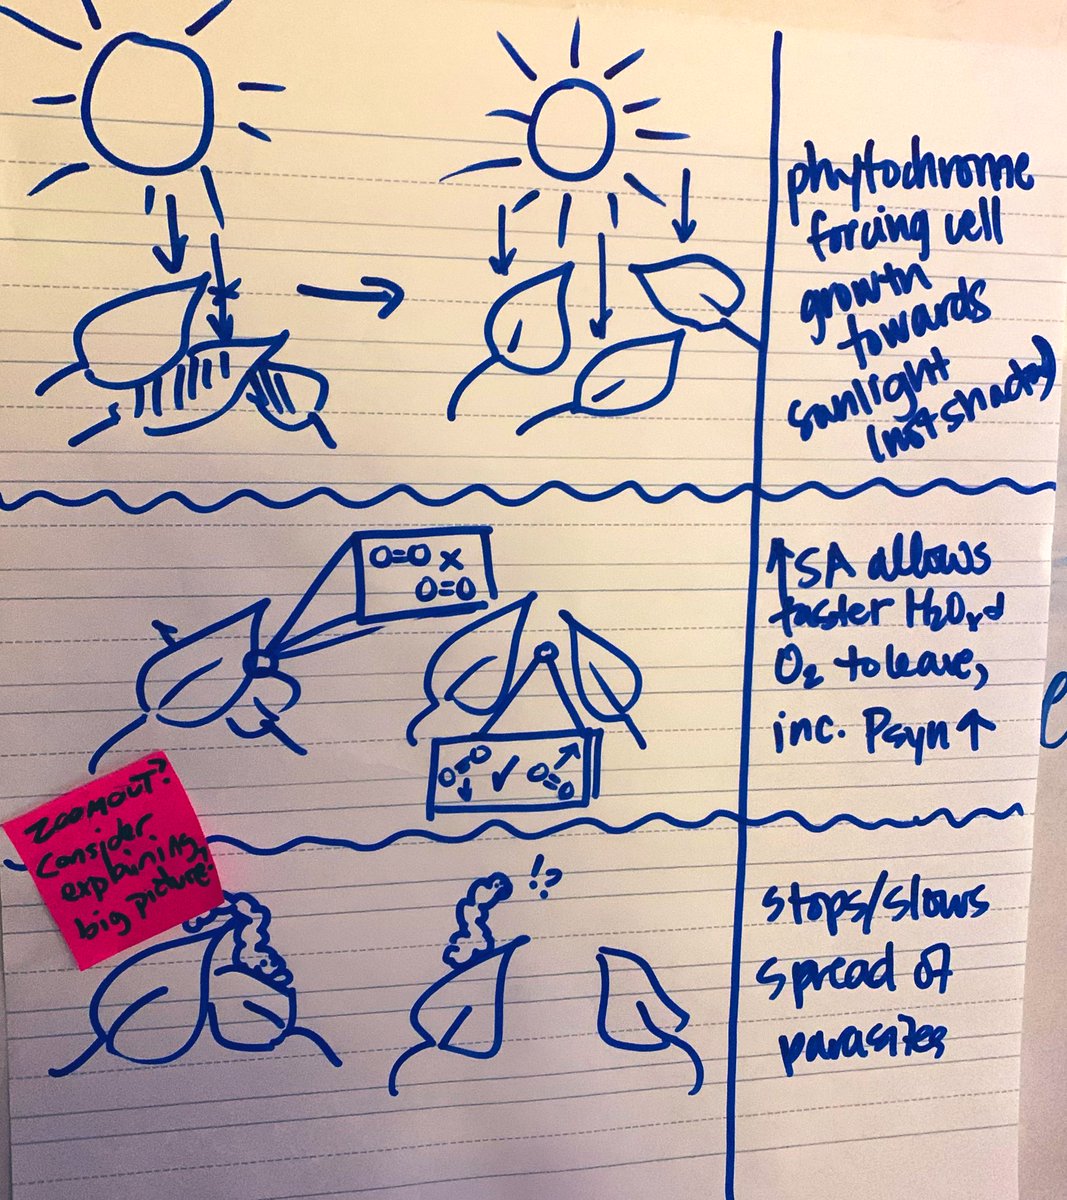 phytochrome
forcing cell
growth
towards
sunlight
(not shade)
O=O x
O=O
↑SA allows
faster H₂O
O₂ to leave,
inc. Psyn ↑
O=O ✓ O=O
ZOOM OUT?
Consider
explaining
big picture.
!?
stops/slows
spread of
parasites